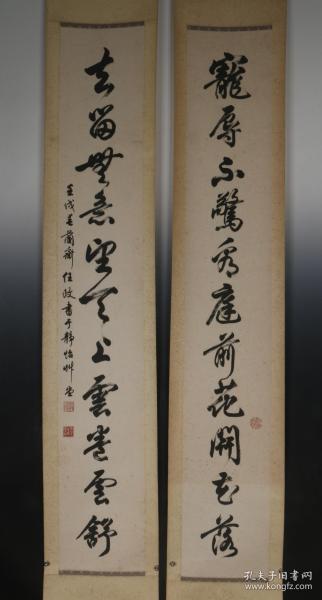 寵辱不驚看庭前花開花落
去留無意望天上雲卷雲舒
壬戌春蘭齋任政書于靜怡艸堂
孔夫子旧书网
kongfz.com